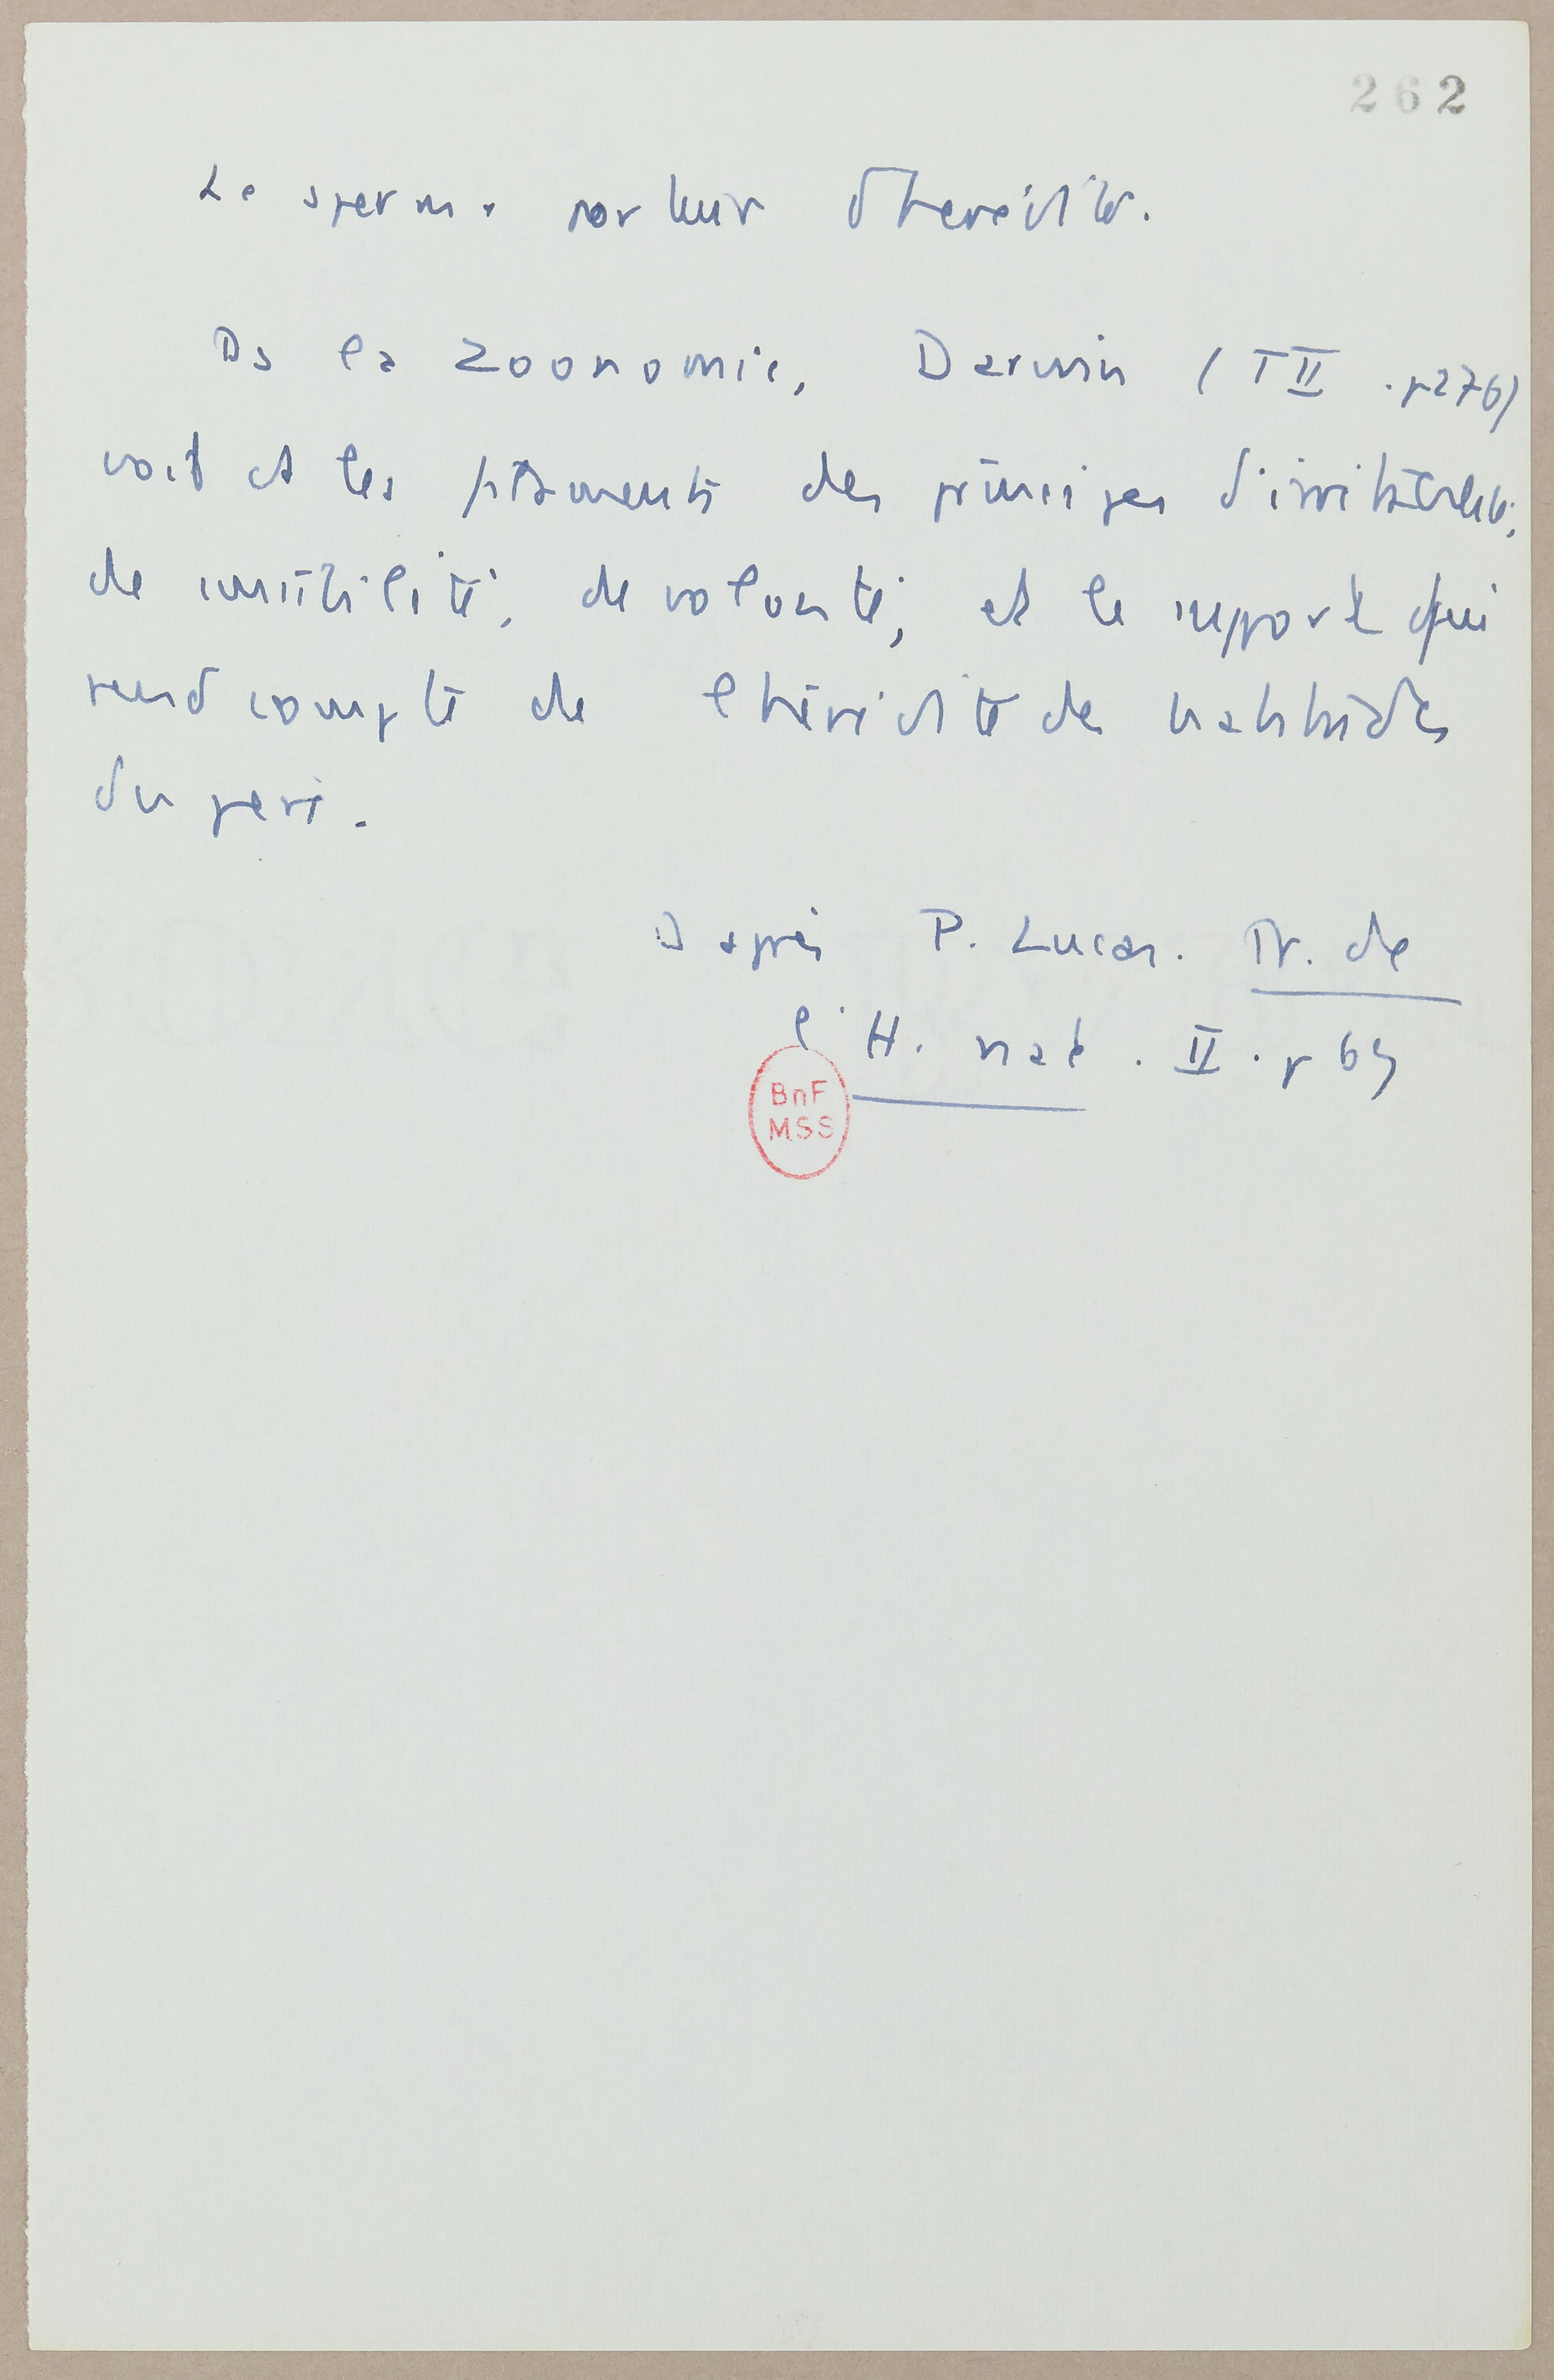 262
Le sperme porteur d'hérédité.
Ds la Zoonomie, Darwin (T II . p 276)
voit ds les filaments des principes d'irritabilité,
de sensibilité, de volonté, et le support qui
rend compte de l'hérédité des habitudes
du père.
D'après P. Lucas. Tr. de
l'H. nat. II. p 65
BnF
MSS